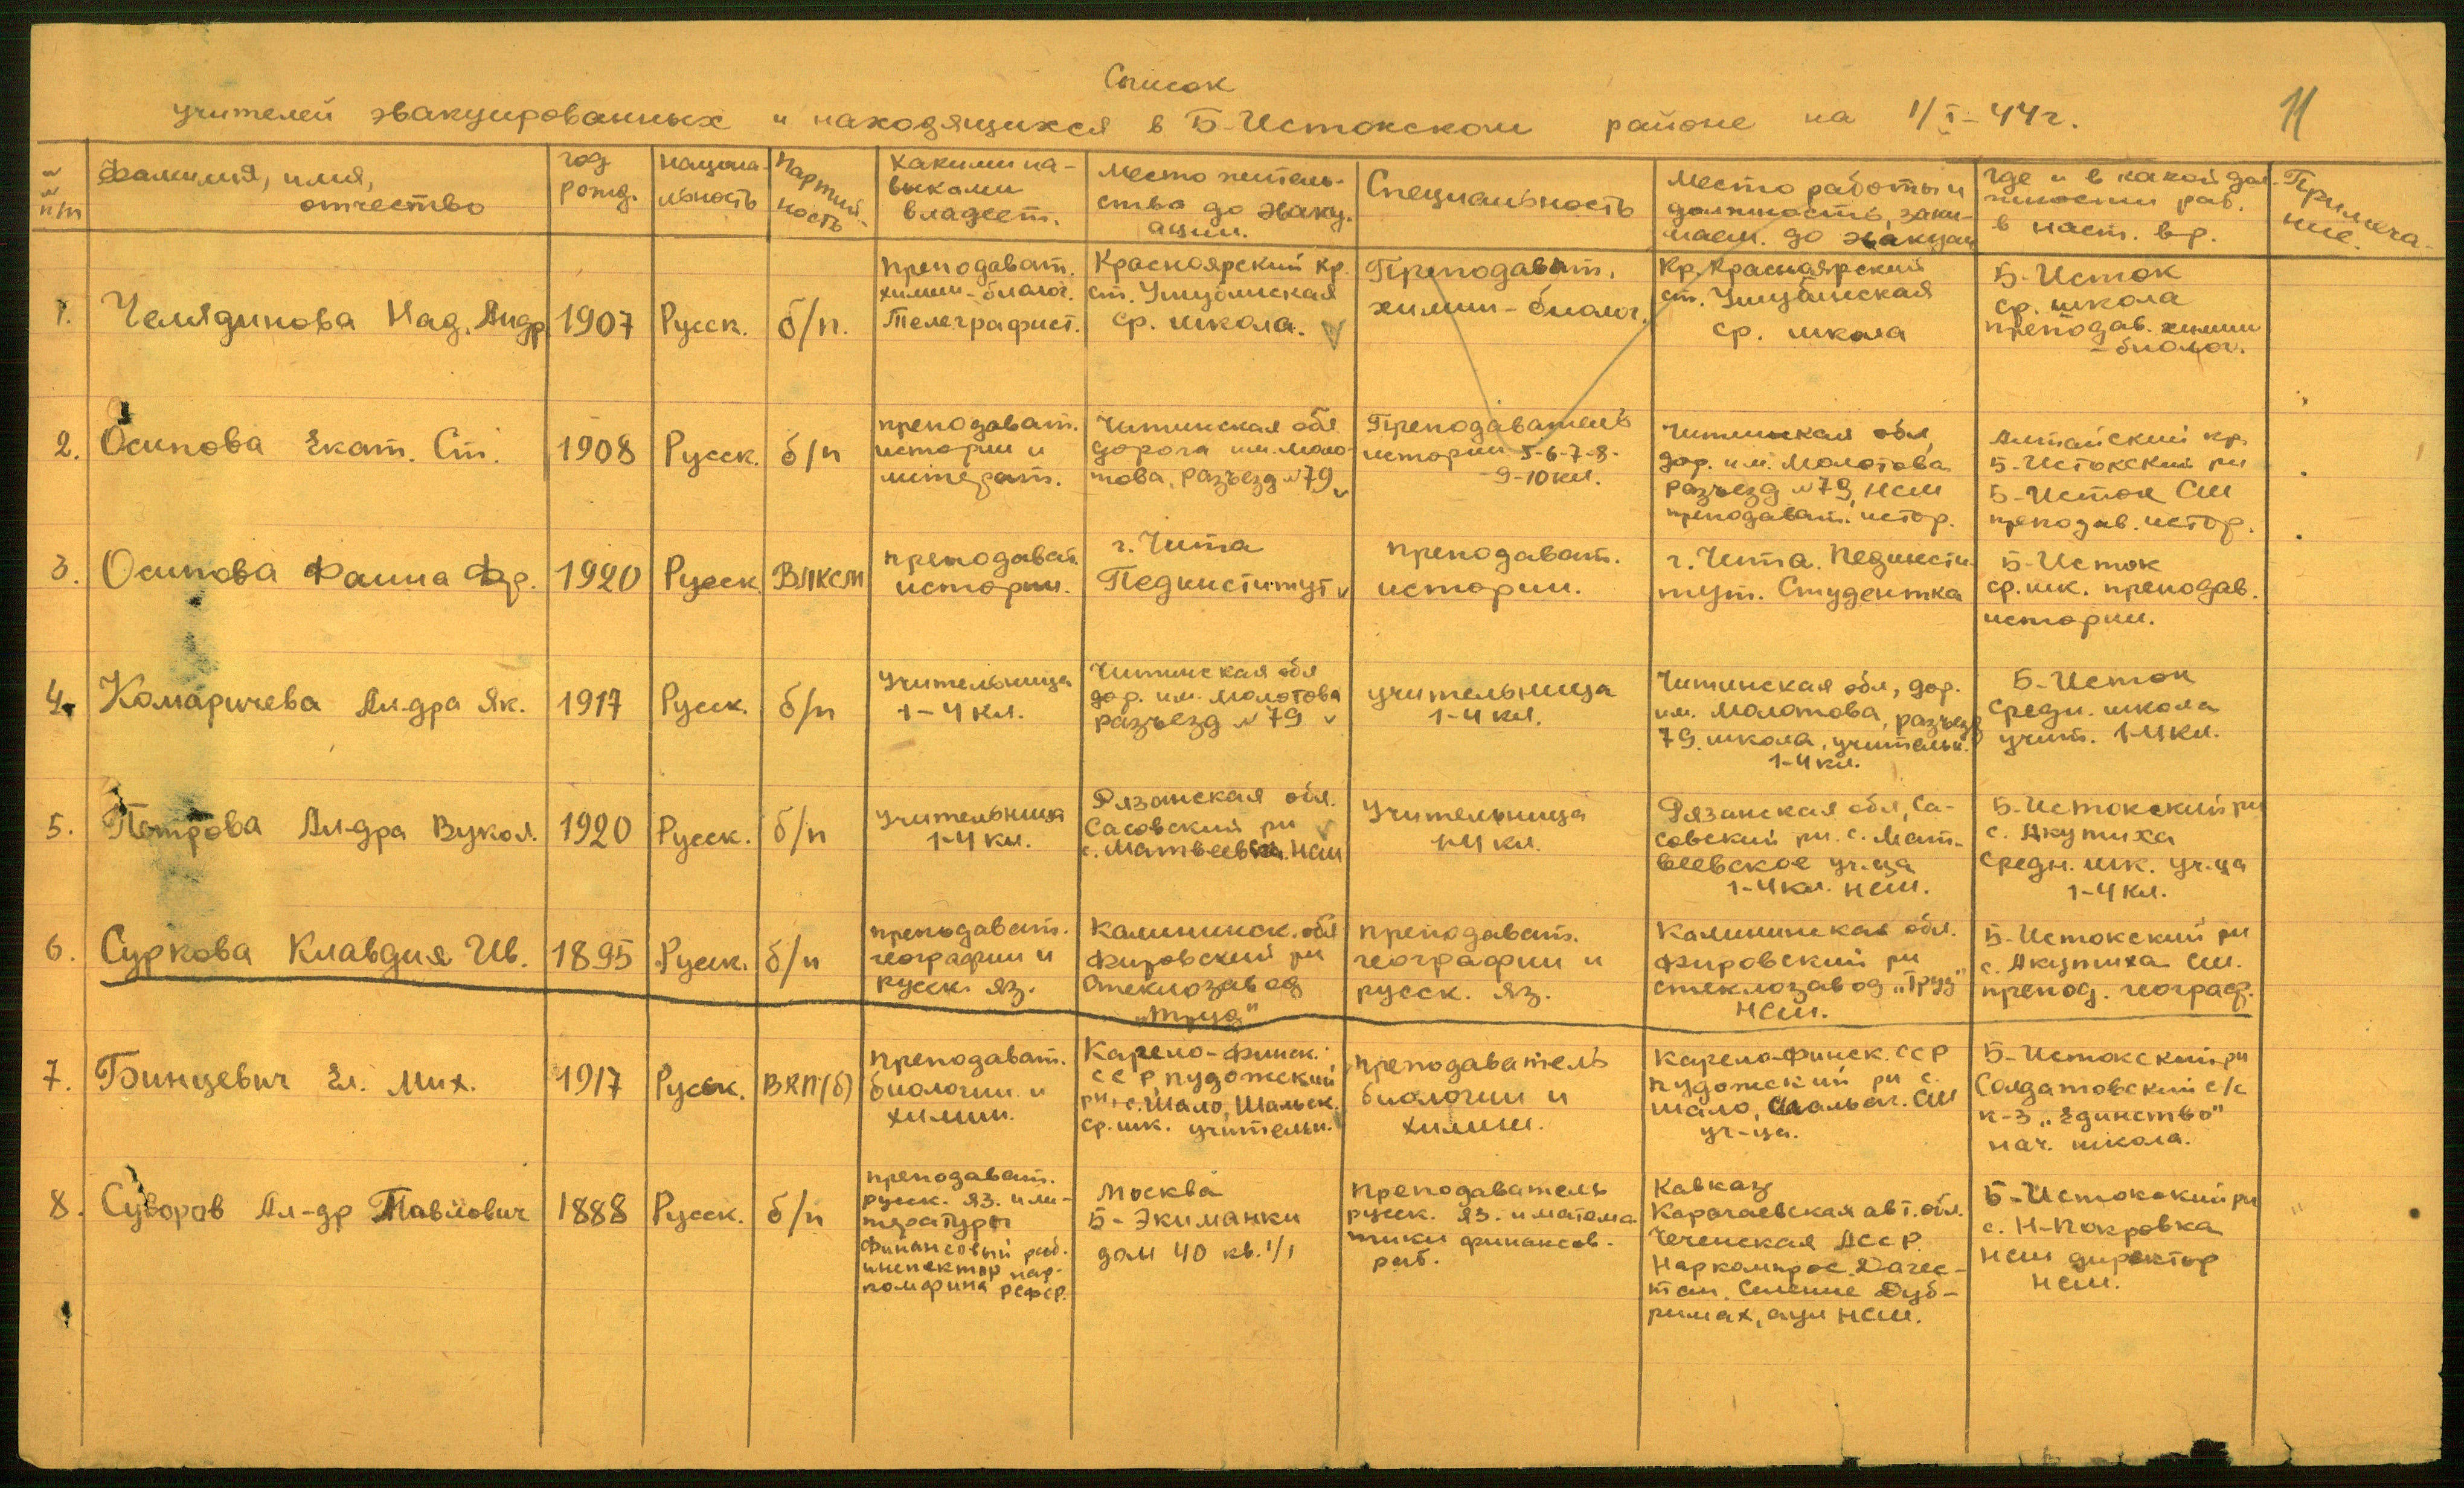 Список
учителей эвакуированных и находящихся в Б-Истокском районе на 1/I-44г.
11
№№ п/п
Фамилия, имя,
отчество
год
рожд.
национа-
льность
Партий-
ность
Какими на-
выками
владеет.
Место житель-
ства до эваку-
ации.
Специальность
Место работы и
должность, зани-
маем. до эвакуац
Где и в какой дол-
жности раб.
в наст. вр.
Примеча-
ние.
1.
Челядинова Над. Андр.
1907
Русск.
б/п.
преподават.
химии-биолог.
Телеграфист.
Красноярский кр.
ст.
ср. школа.
Преподават.
химии-биолог.
Кр. Красноярский
ст.
ср. школа
Б-Исток
ср. школа
преподав. химии
-биолог.
2.
Осипова Екат. Ст.
1908
Русск.
б/п
преподават.
истории и
литерат.
Читинская обл
дорога им. Моло-
това, разъезд №79
Преподаватель
истории 5-6-7-8-
9-10 кл.
Читинская обл,
дор. им. Молотова
разъезд №79, НСШ
преподават. истор.
Алтайский кр.
Б-Истокский рн
Б-Исток СШ
преподав. истор.
3.
Осипова Фаина Фдр.
1920
Русск.
ВЛКСМ
преподават
истории.
г. Чита
Пединститут
преподават.
истории.
г. Чита. Пединсти-
тут. Студентка
Б-Исток
ср. шк. преподав.
истории.
4.
Комаричева Ал-дра Як.
1917
Русск.
б/п
учительница
1-4 кл.
Читинская обл
дор. им. Молотова
разъезд №79
учительница
1-4 кл.
Читинская обл, дор.
им. Молотова, разъезд
79. школа, учительн.
1-4 кл.
Б-Исток
средн. школа
учит. 1-4 кл.
5.
Петрова Ал-дра Вукол.
1920
Русск.
б/п
Учительница
1-4 кл.
Рязанская обл.
Сасовский рн
с. Матвеевка. НСШ
Учительница
1-4 кл.
Рязанская обл, Са-
совский рн. с. Мат-
веевское уч-ца
1-4 кл. НСШ.
Б-Истокский рн
с. Акутиха
Средн. шк. уч-ца
1-4 кл.
6.
Суркова Клавдия Ив.
1895
Русск.
б/п
преподават.
географии и
русск. яз.
Калининск. обл
Фировский рн
стеклозавод
„Труд"
преподават.
географии и
русск. яз.
Калининская обл.
Фировский рн
стеклозавод „Труд"
НСШ.
Б-Истокский рн
с. Акутиха СШ.
препод. географ.
7.
Бинцевич Ел. Мих.
1917
Русск.
ВКП(б)
преподават.
биологии и
химии.
Карело-Финск.
ССР, Пудожский
рн, с. Шало, Шальск.
ср. шк. учительн.
преподаватель
биологии и
химии.
Карело-Финск. ССР
Пудожский рн с.
Шало, Шальск. СШ
уч-ца.
Б-Истокский рн
Солдатовский с/с
к-з „Единство"
нач. школа.
8.
Суворов Ал-др Павлович
1888
Русск.
б/п
преподават.
русск. яз. и ли-
тературы
Финансовый раб.
инспектор нар-
комфина РСФСР.
Москва
Б-Экиманки
дом 40 кв. 1/1
преподаватель
русск. яз. и матема-
тики финансов.
раб.
Кавказ
Карачаевская авт. обл.
Чеченская АССР.
Наркомпрос. Дагес-
тан. Селение
аул НСШ.
Б-Истокский рн
с. Н-Покровка
НСШ директор
НСШ.